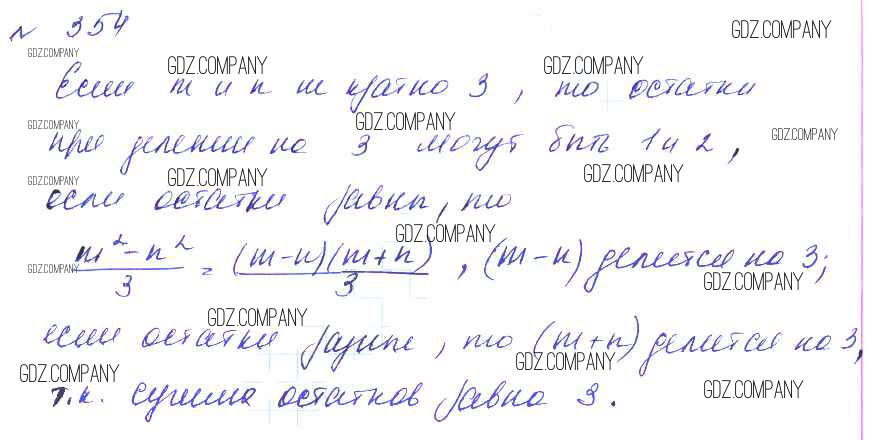 № 354
GDZ.COMPANY
GDZ.COMPANY
GDZ.COMPANY GDZ.COMPANY
Если m и n не кратно 3, то остатки
GDZ.COMPANY GDZ.COMPANY GDZ.COMPANY
при делении на 3 могут быть 1 и 2,
GDZ.COMPANY GDZ.COMPANY GDZ.COMPANY
если остатки равны, то
GDZ.COMPANY
m² - n² / 3 = (m-n)(m+n) / 3, (m-n) делится на 3;
GDZ.COMPANY GDZ.COMPANY
GDZ.COMPANY
если остатки разные, то (m+n) делится на 3,
GDZ.COMPANY GDZ.COMPANY
т.к. сумма остатков равна 3.
GDZ.COMPANY